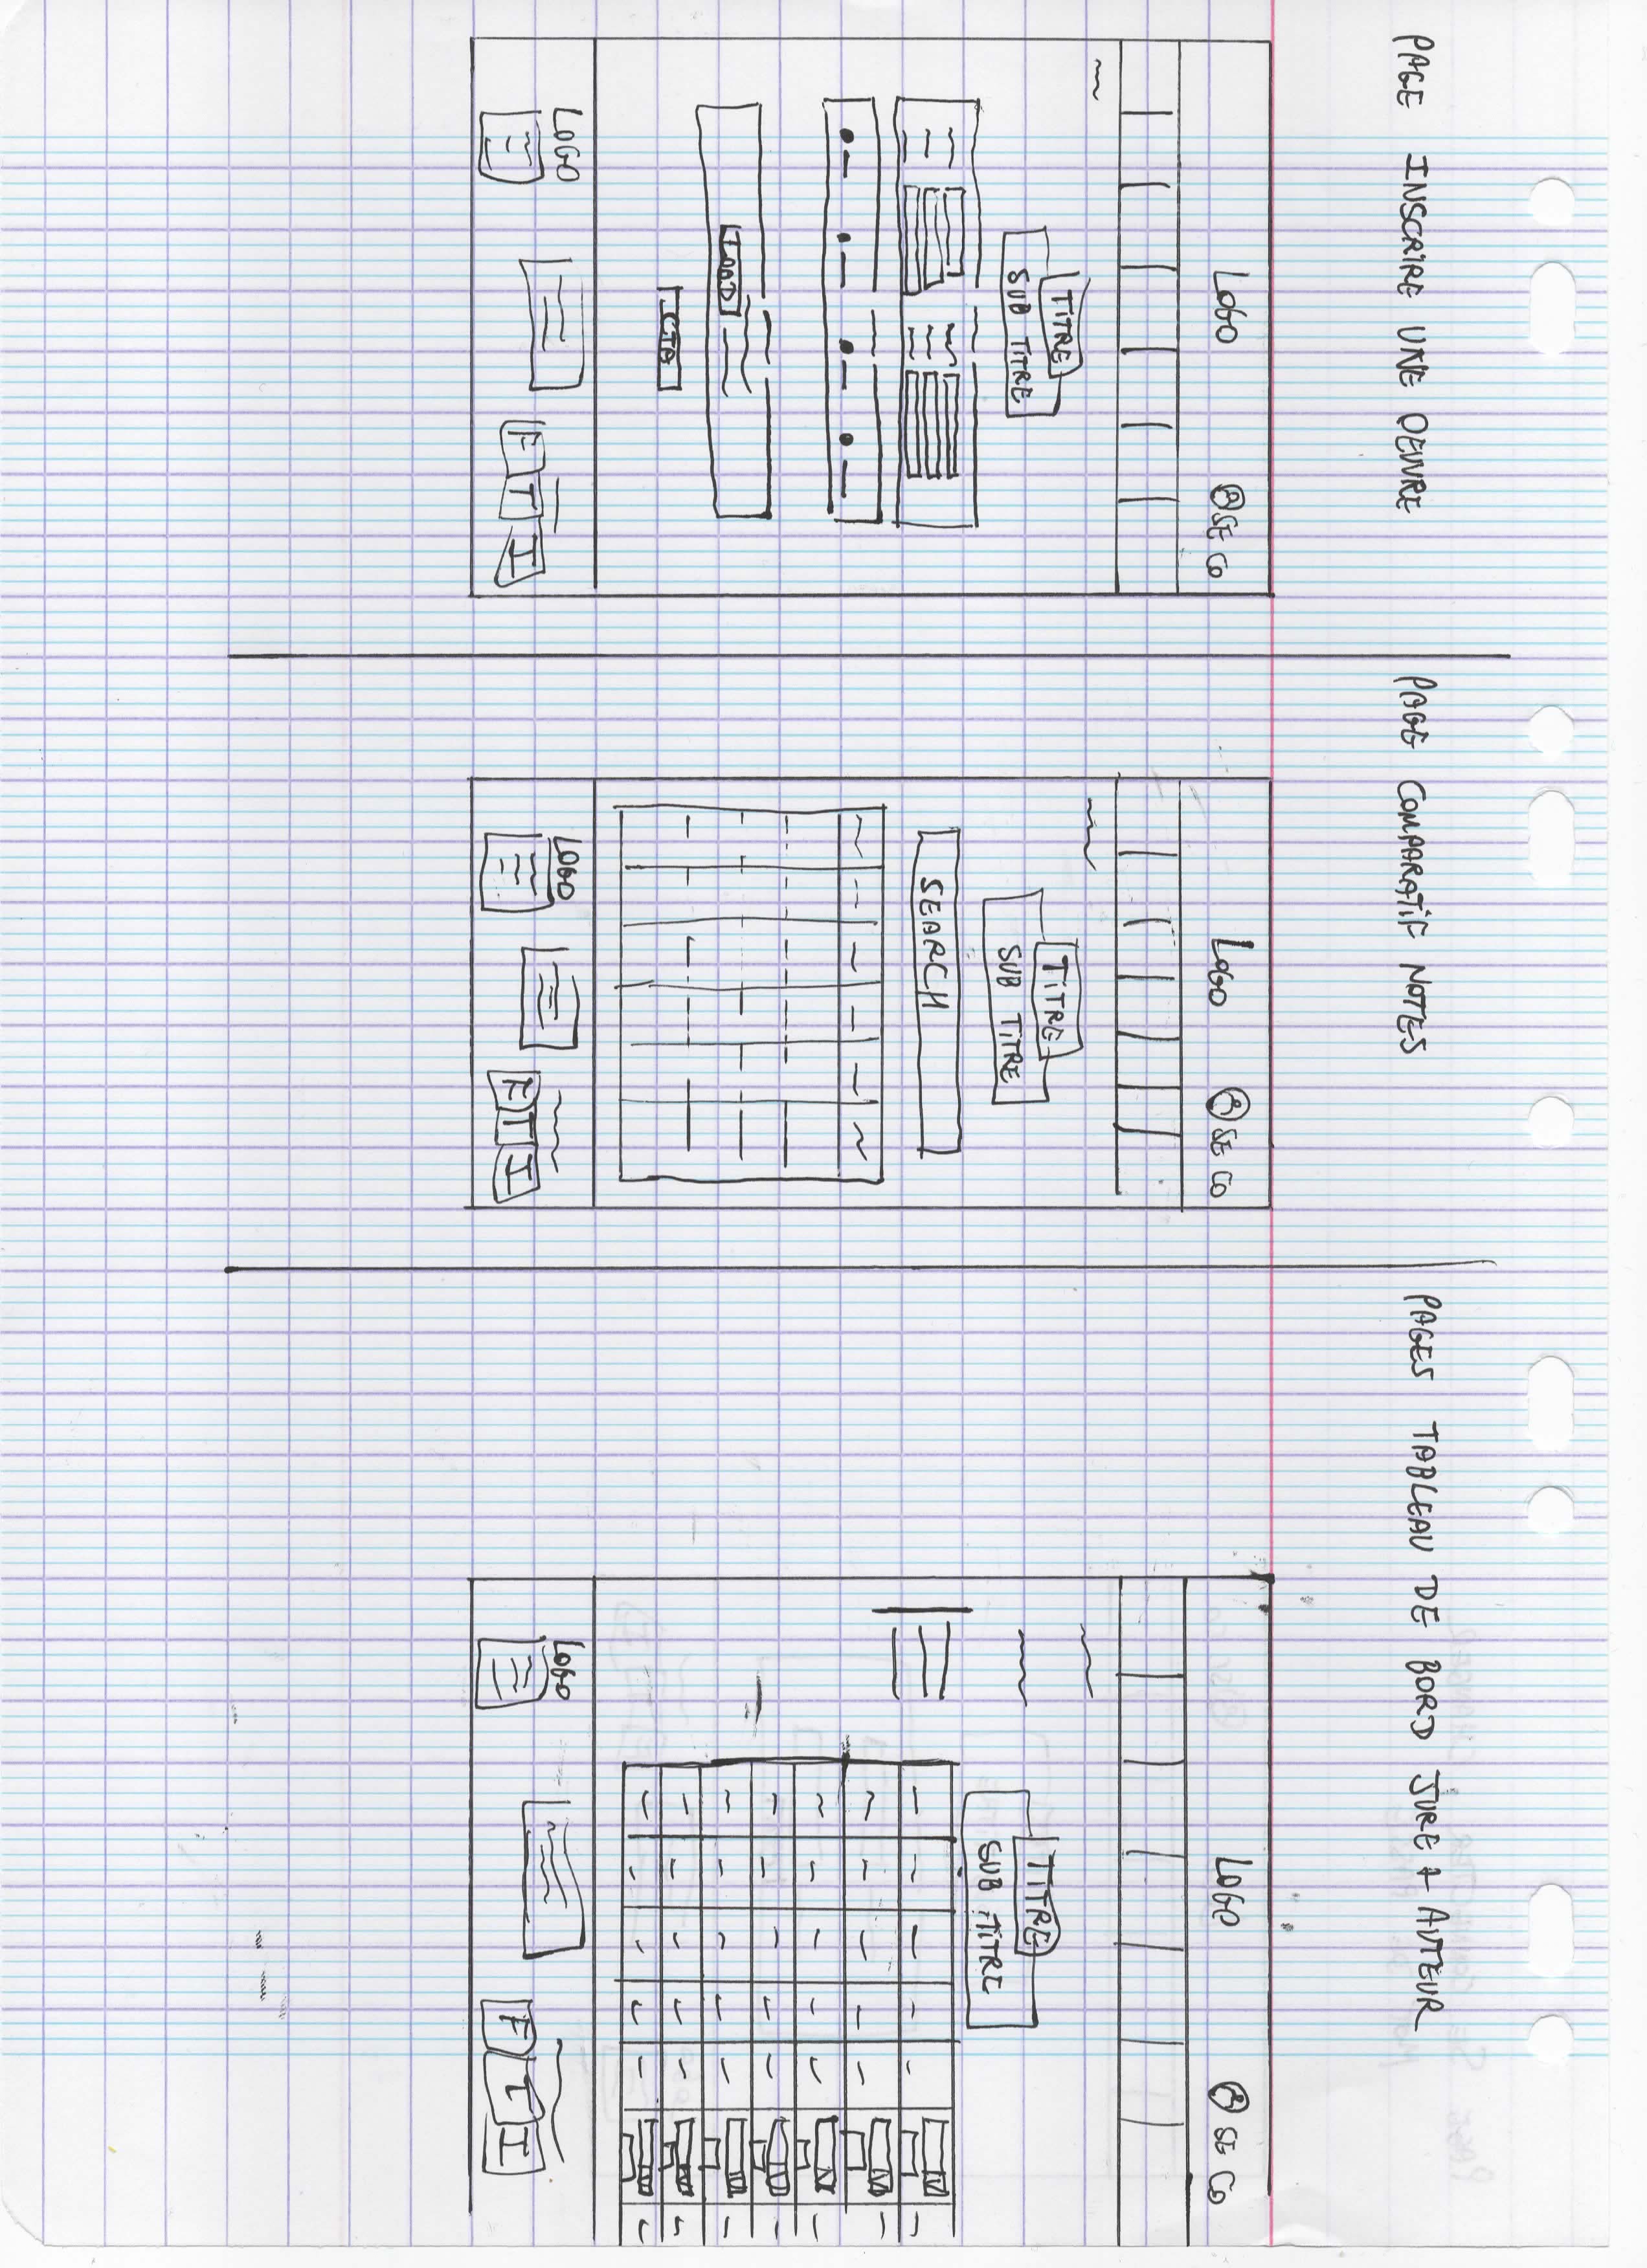 PAGE INSCRIRE UNE OEUVRE
LOGO
SE CO
TITRE
SUB TITRE
LOAD
CTA
LOGO
F T I
PAGE COMPARATIF NOTES
LOGO
SE CO
TITRE
SUB TITRE
SEARCH
LOGO
F T I
PAGES TABLEAU DE BORD JURE + AUTEUR
LOGO
SE CO
TITRE
SUB TITRE
LOGO
F T I
PAGE SE CONNECTER + CHANGER
MOT DE PASSE